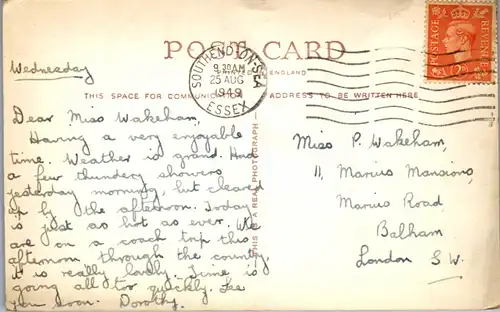 POST CARD
PRINTED IN ENGLAND
THIS SPACE FOR COMMUNICATION ADDRESS TO BE WRITTEN HERE
SOUTHEND-ON-SEA
9.30AM
25 AUG
1949
ESSEX
POSTAGE REVENUE
Wednesday
Dear Miss Wakeham,
Having a very enjoyable
time. Weather is grand. Had
a few thundery showers
yesterday morning, but cleared
up by the afternoon. Today
is just as hot as ever. We
are on a coach trip this
afternoon through the country,
it is really lovely. Time is
going all too quickly. See
you soon. Dorothy.
THIS IS A REAL PHOTOGRAPH
Miss P. Wakeham,
11, Marius Mansions,
Marius Road,
Balham
London S.W.